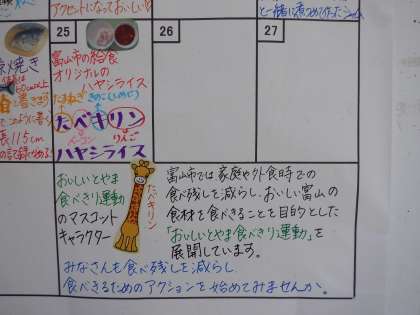 アクセントになっておいしい
と一緒に煮つめて作ったジャム
25
26
27
富山市の給食
オリジナルの
ハヤシライス
たまねぎ
きのこ(しめじ)
たべキリン
りんご
ハヤシライス
焼き
長115cm
おいしいとやま
食べきり運動
のマスコット
キャラクター
たべキリン
富山市では家庭や外食時での
食べ残しを減らし、おいしい富山の
食材を食べきることを目的とした
「おいしいとやま食べきり運動」を
展開しています。
みなさんも食べ残しを減らし
食べきるためのアクションを始めてみませんか。